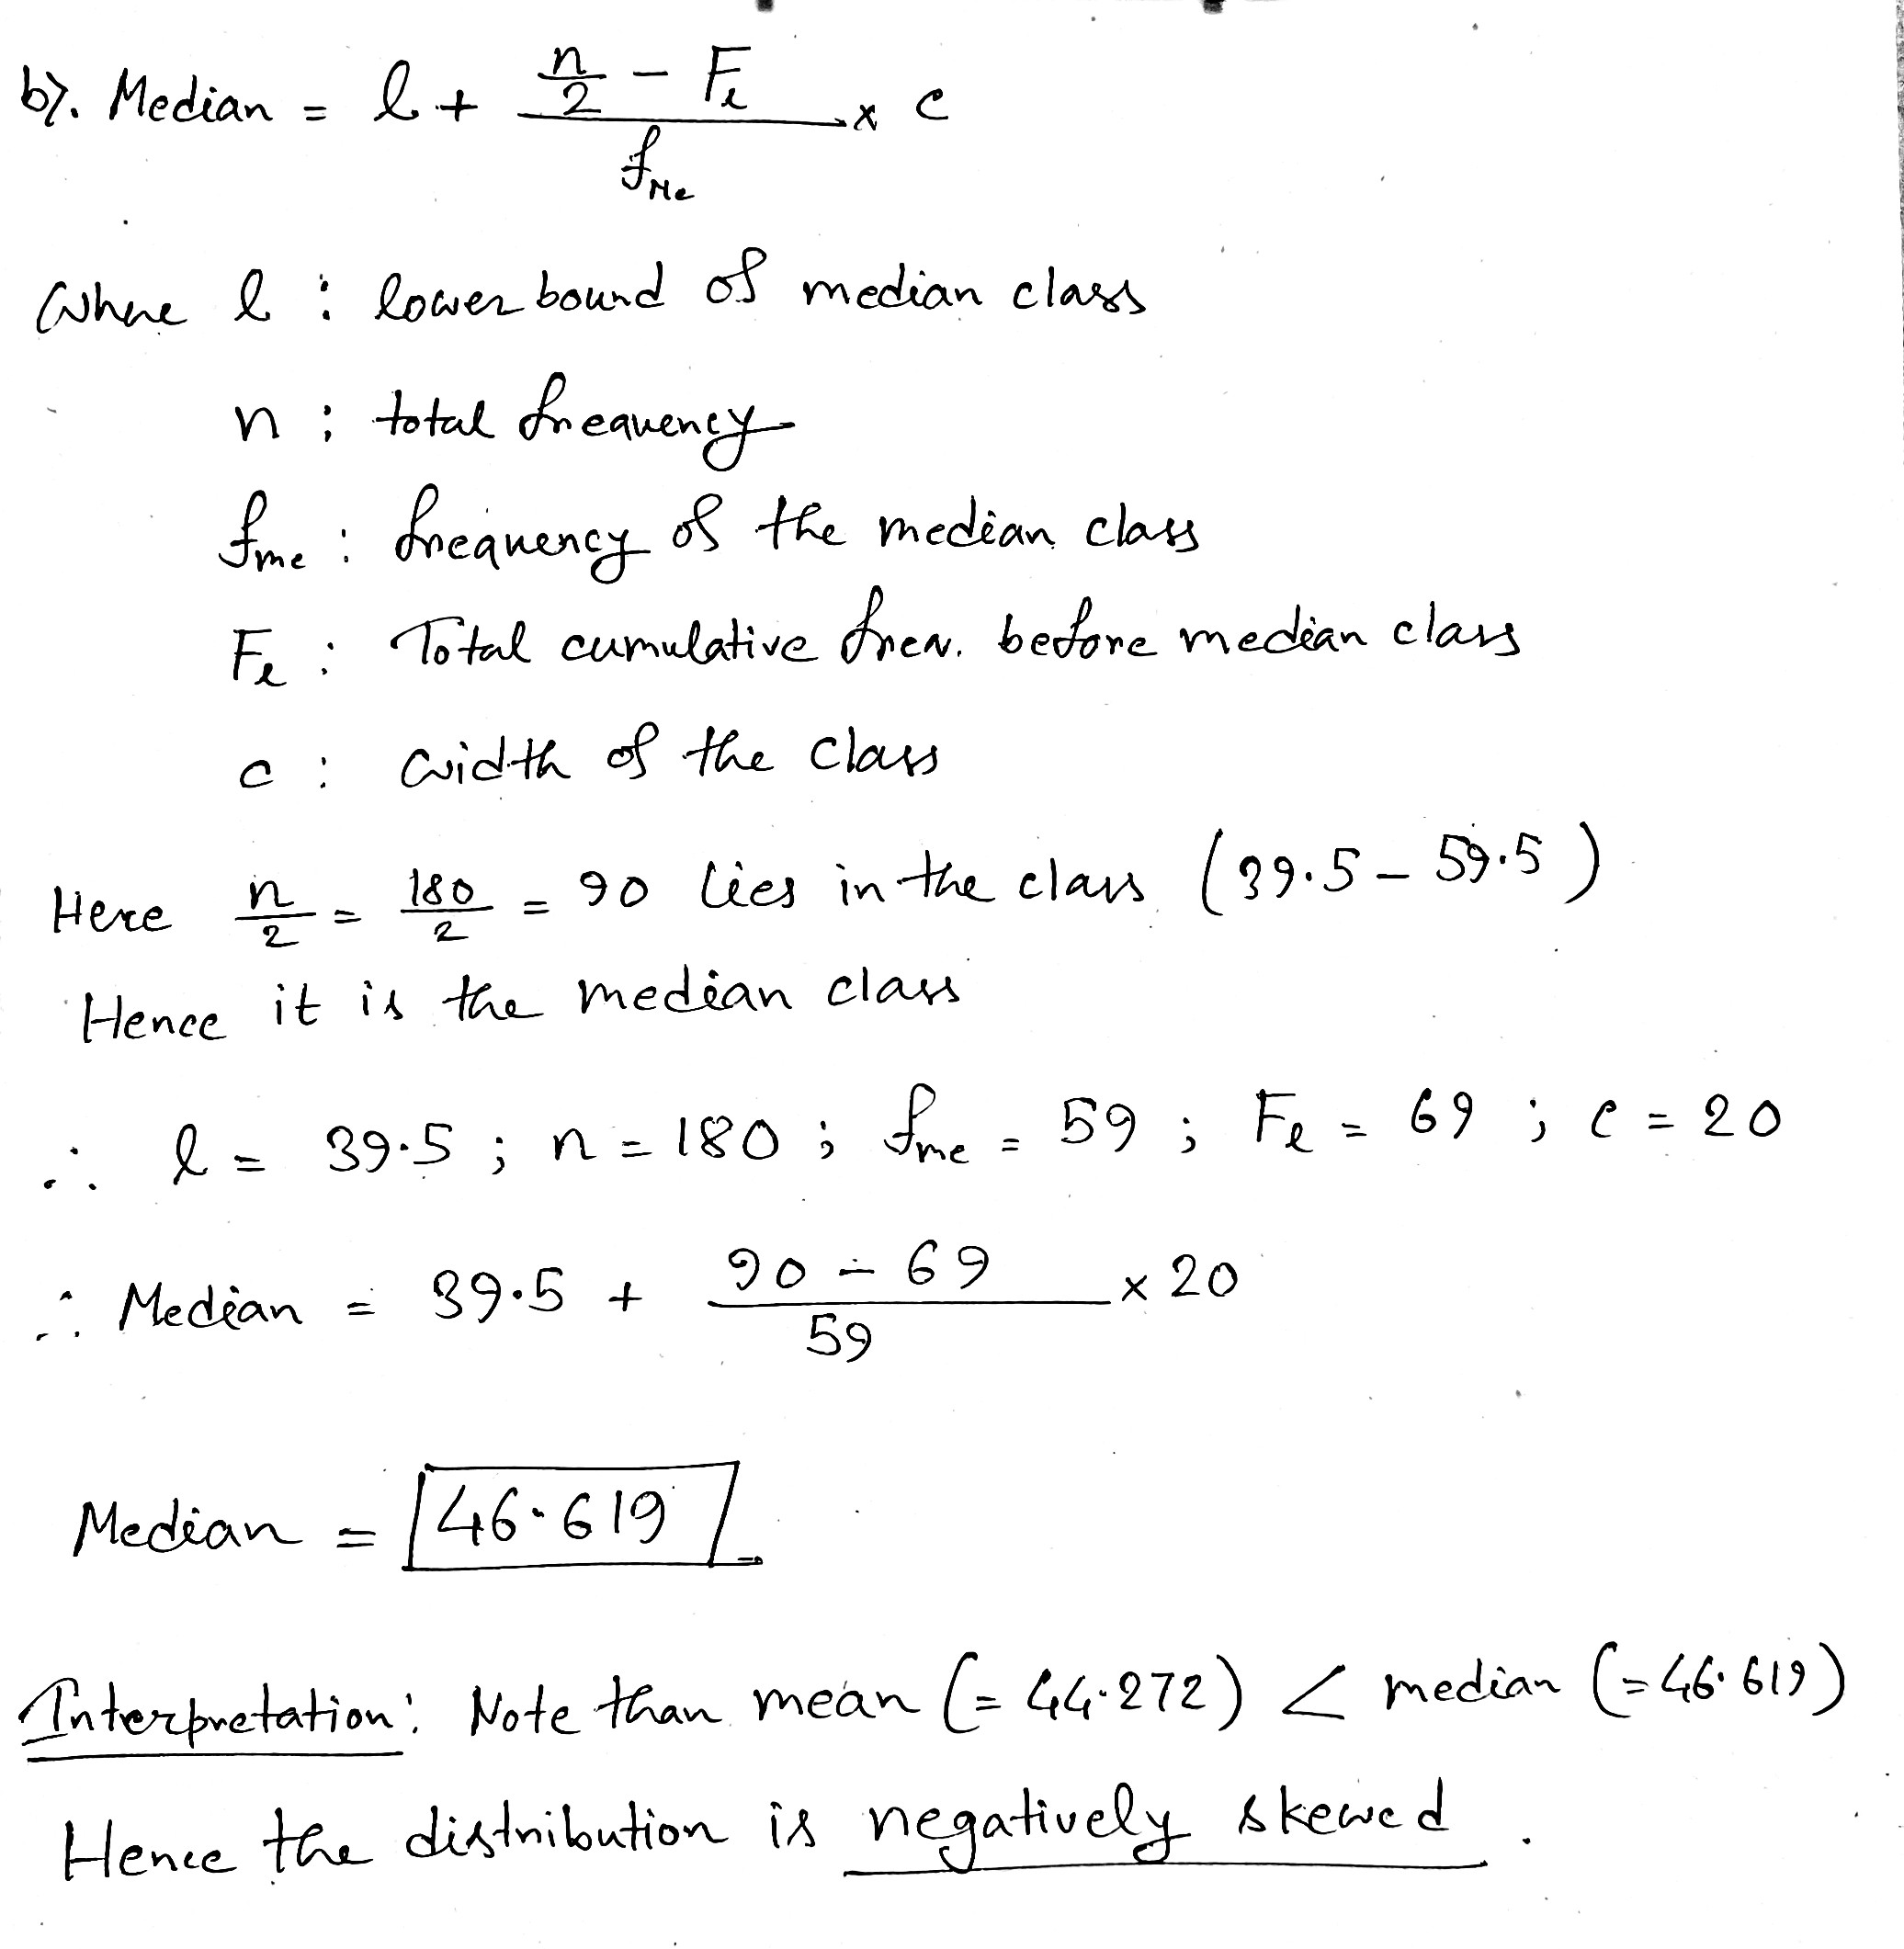 b). Median = l + (n/2 - Fe)/fMe x c
Where l : lower bound of median class
n ; total frequency
fme : frequency of the median class
Fe : Total cumulative freq. before median class
c : width of the class
Here n/2 = 180/2 = 90 lies in the class (39.5 - 59.5)
Hence it is the median class
∴ l = 39.5 ; n = 180 ; fme = 59 ; Fe = 69 ; c = 20
∴ Median = 39.5 + (90 - 69)/59 x 20
Median = 46.619
Interpretation: Note than mean (= 44.272) < median (= 46.619)
Hence the distribution is negatively skewed.